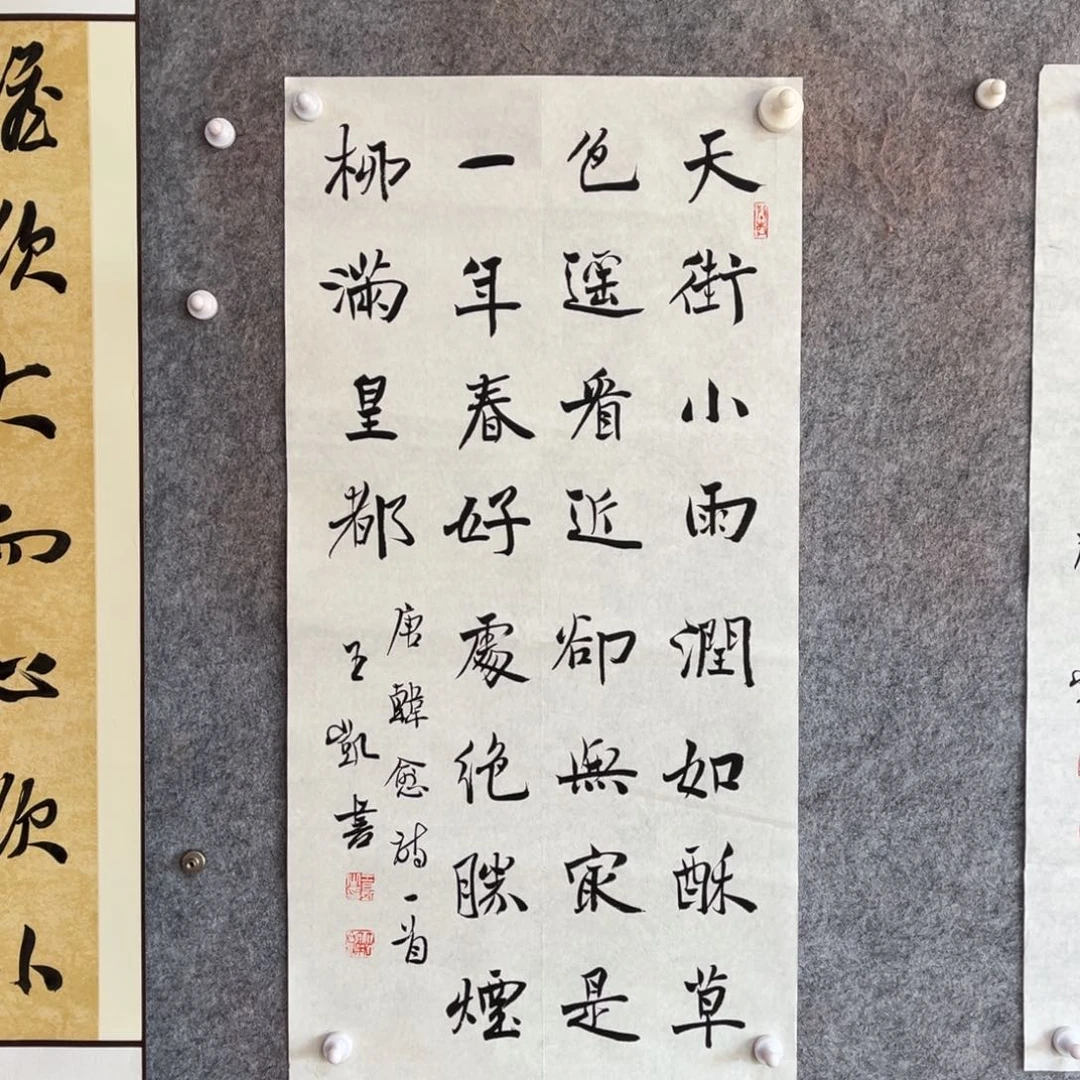 天街小雨潤如酥草
色遥看近卻無㝡是
一年春好處絶勝煙
柳滿皇都
唐韓愈詩一首
王凱書
欲大而心欲小